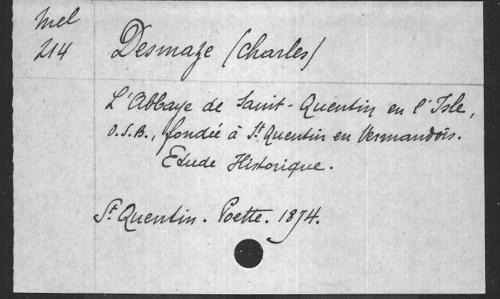 Mel
214
Desmaze (Charles)
L'Abbaye de Saint-Quentin en l'Isle,
O.S.B., fondée à St Quentin en Vermandois.
Etude Historique.
St Quentin. Poette. 1874.